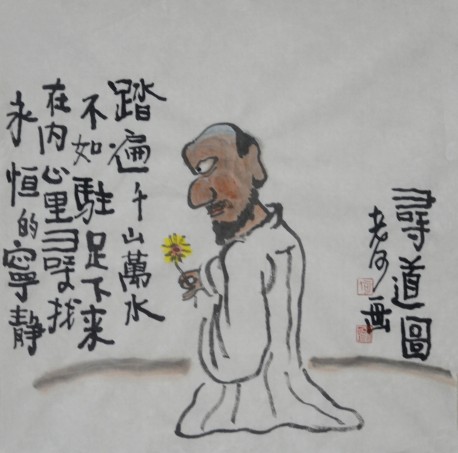 尋道圖
老何画
踏遍千山萬水
不如駐足下来
在内心里尋找
永恒的寧靜